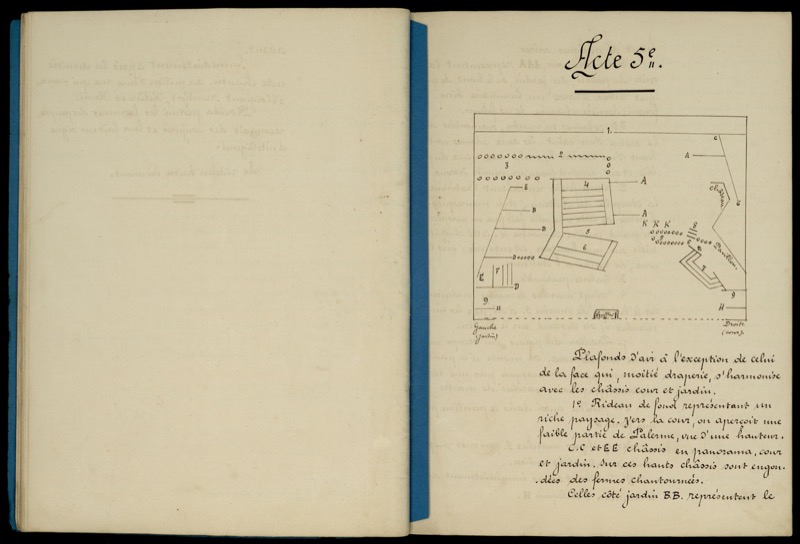 Acte 5e.
1.
c
2
A
3
4
A
E
Château
B
A
c
K K K
5
B
6
Pavillon.
7
E
F
D
9
9
H
H
Gauche
(jardin)
Droite
(cour).
Plafonds d'air à l'exception de celui
de la face qui, moitié draperie, s'harmonise
avec les châssis cour et jardin.
1e. Rideau de fond représentant un
riche paysage. Vers la cour, on aperçoit une
faible partie de Palerme, vue d'une hauteur.
C.C et EE châssis en panorama, cour
et jardin. Sur ces hauts châssis sont engon-
.dées des fermes chantournées.
Celles côté jardin BB. représentent le